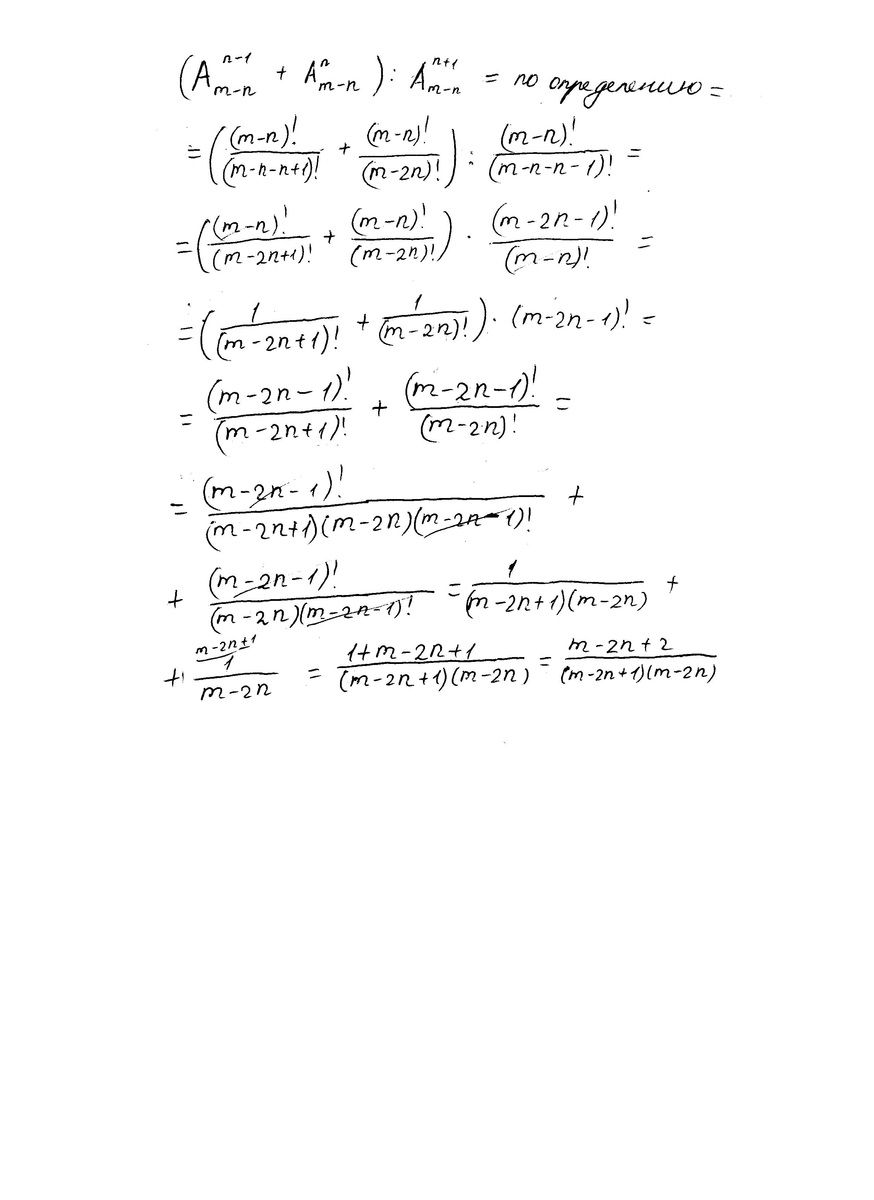 (A_{m-n}^{n-1} + A_{m-n}^{n}) : A_{m-n}^{n+1} = по определению =
= ((m-n)!/(m-n-n+1)! + (m-n)!/(m-2n)!) : (m-n)!/(m-n-n-1)! =
= ((m-n)!/(m-2n+1)! + (m-n)!/(m-2n)!) · (m-2n-1)!/(m-n)! =
= (1/(m-2n+1)! + 1/(m-2n)!) · (m-2n-1)! =
= (m-2n-1)!/(m-2n+1)! + (m-2n-1)!/(m-2n)! =
= (m-2n-1)!/(m-2n+1)(m-2n)(m-2n-1)! +
+ (m-2n-1)!/(m-2n)(m-2n-1)! = 1/(m-2n+1)(m-2n) +
+ m-2n+1/ 1/m-2n = 1+m-2n+1/(m-2n+1)(m-2n) = m-2n+2/(m-2n+1)(m-2n)